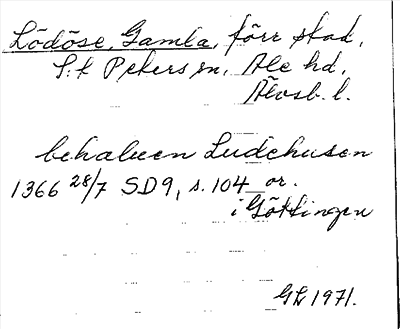 Lödöse, Gamla, förr stad,
S:t Peters sn, Ale hd,
Älvsb. l.
behalven Ludehusen
1366 28/7 SD9, s. 104 or.
i Göttingen
GL 1971.